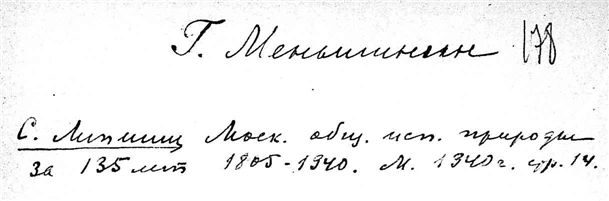 Г. Меньшинин 178
С. Липшиц Моск. общ. исп. природы
за 135 лет 1805-1940. М. 1940г. стр. 14.